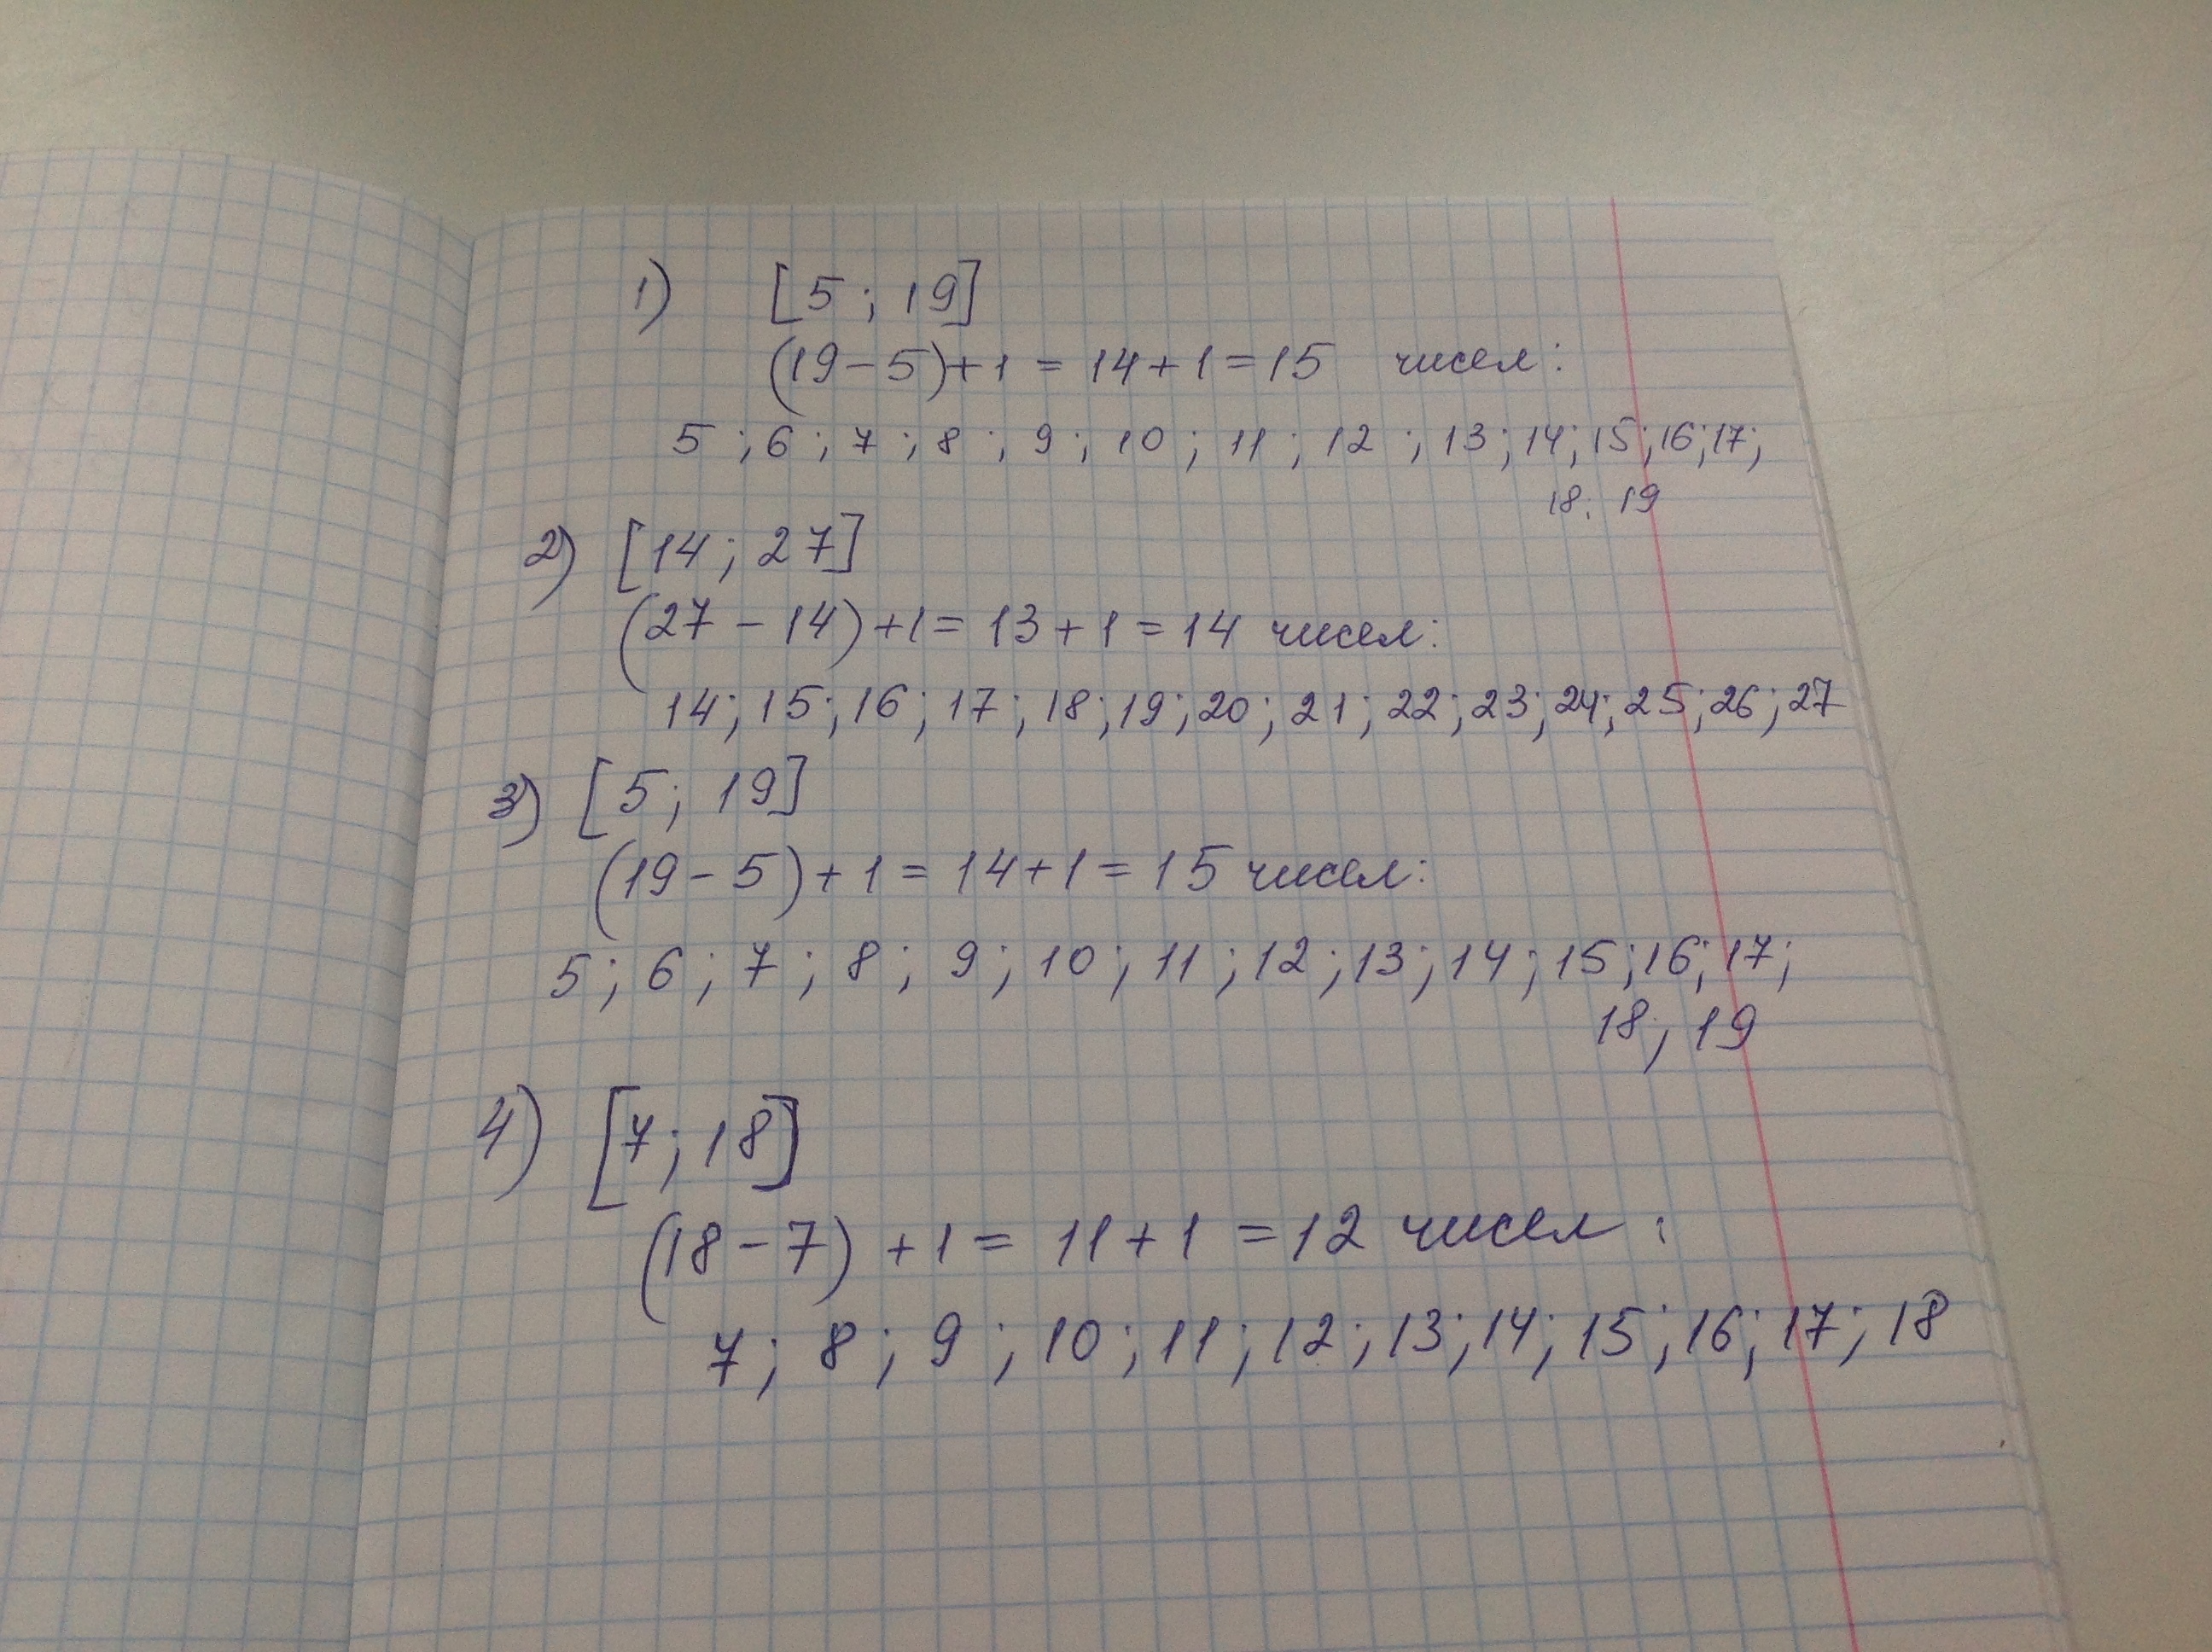 1) [5; 19]
(19-5)+1 = 14+1=15 чисел:
5; 6; 7; 8; 9; 10; 11; 12; 13; 14; 15; 16; 17;
18; 19
2) [14; 27]
(27-14)+1= 13+1=14 чисел:
14; 15; 16; 17; 18; 19; 20; 21; 22; 23; 24; 25; 26; 27
3) [5; 19]
(19-5)+1=14+1=15 чисел:
5; 6; 7; 8; 9; 10; 11; 12; 13; 14; 15; 16; 17;
18; 19
4) [7; 18]
(18-7)+1= 11+1=12 чисел:
7; 8; 9; 10; 11; 12; 13; 14; 15; 16; 17; 18